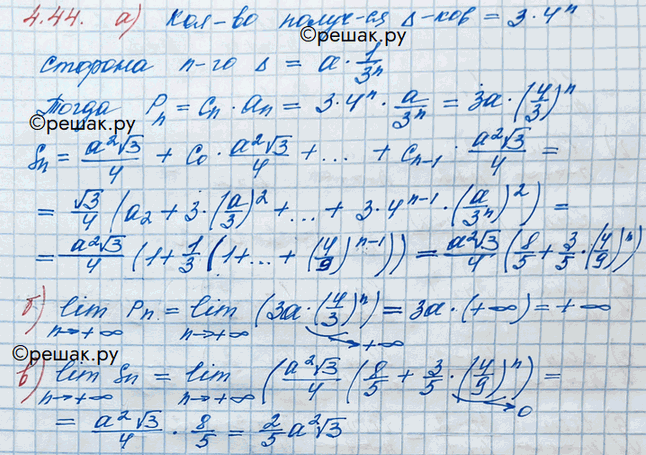 4.44. а) Кол-во получ-ся Δ-ков = 3·4ⁿ
©решак.ру
сторона n-го Δ = a·1/3ⁿ
Тогда Pₙ = cₙ·aₙ = 3·4ⁿ·a/3ⁿ = 3a·(4/3)ⁿ
©решак.ру
Sₙ = a²√3/4 + c₀·a²√3/4 + ... + cₙ₋₁·a²√3/4 =
= √3/4 (a₂ + 3·(a/3)² + ... + 3·4ⁿ⁻¹·(a/3ⁿ)²) =
= a²√3/4 (1 + 1/3 (1 + ... + (4/9)ⁿ⁻¹)) = a²√3/4 (8/5 + 3/5·(4/9)ⁿ)
б) lim Pₙ = lim (3a·(4/3)ⁿ) = 3a·(+∞) = +∞
n→+∞ n→+∞ →+∞
©решак.ру
в) lim Sₙ = lim (a²√3/4 (8/5 + 3/5·(4/9)ⁿ) =
n→+∞ n→+∞ →0
= a²√3/4 · 8/5 = 2/5 a²√3